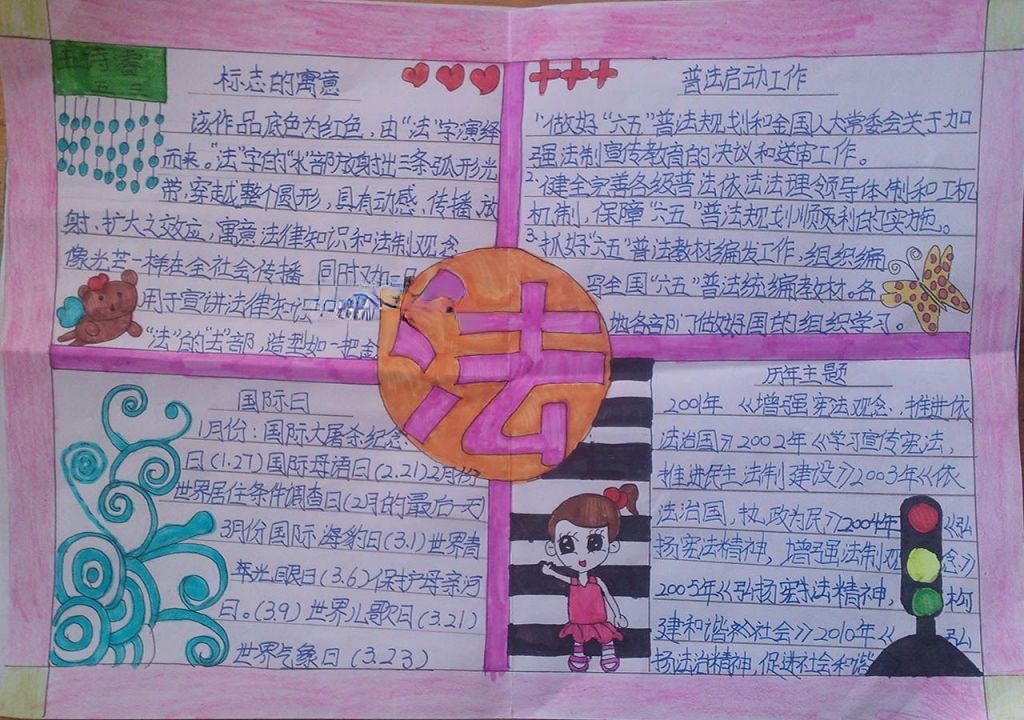 标志的寓意
该作品底色为红色,由"法"字演绎
而来。"法"字的"水"部放射出三条弧形光
带,穿越整个圆形,具有动感、传播、放
射、扩大之效应,寓意法律知识和法制观念
像光芒一样在全社会传播 同时又如一只
用于宣讲法律知识
"法"的"去"部,造型如一把金
普法启动工作
1做好"六五"普法规划和全国人大常委会关于加
强法制宣传教育的决议和送审工作。
2.健全完善各级普法依法法理领导体制和工机
机制,保障"六五"普法规划顺顺利的实施。
3.抓好"六五"普法教材编发工作,组织编
写全国"六五"普法统编教材。各
地各部门做好国的组织学习。
法
国际日
1月份:国际大屠杀纪念
日(1.27)国际母语日(2.21)2月份
世界居住条件调查日(2月的最后一天)
3月份国际海豹日(3.1)世界青
年光眼日(3.6)保护母亲河
日。(3.9)世界儿歌日(3.21)
世界气象日(3.23)
历年主题
2001年《增强宪法观念,推进依
法治国》2002年《学习宣传宪法,
推进民主法制建设》2003年《依
法治国,执政为民》2004年《弘
扬宪法精神,增强法制观念》
2005年《弘扬宪法精神,构
建和谐社会》2010年《弘
扬法治精神,促进社会和谐